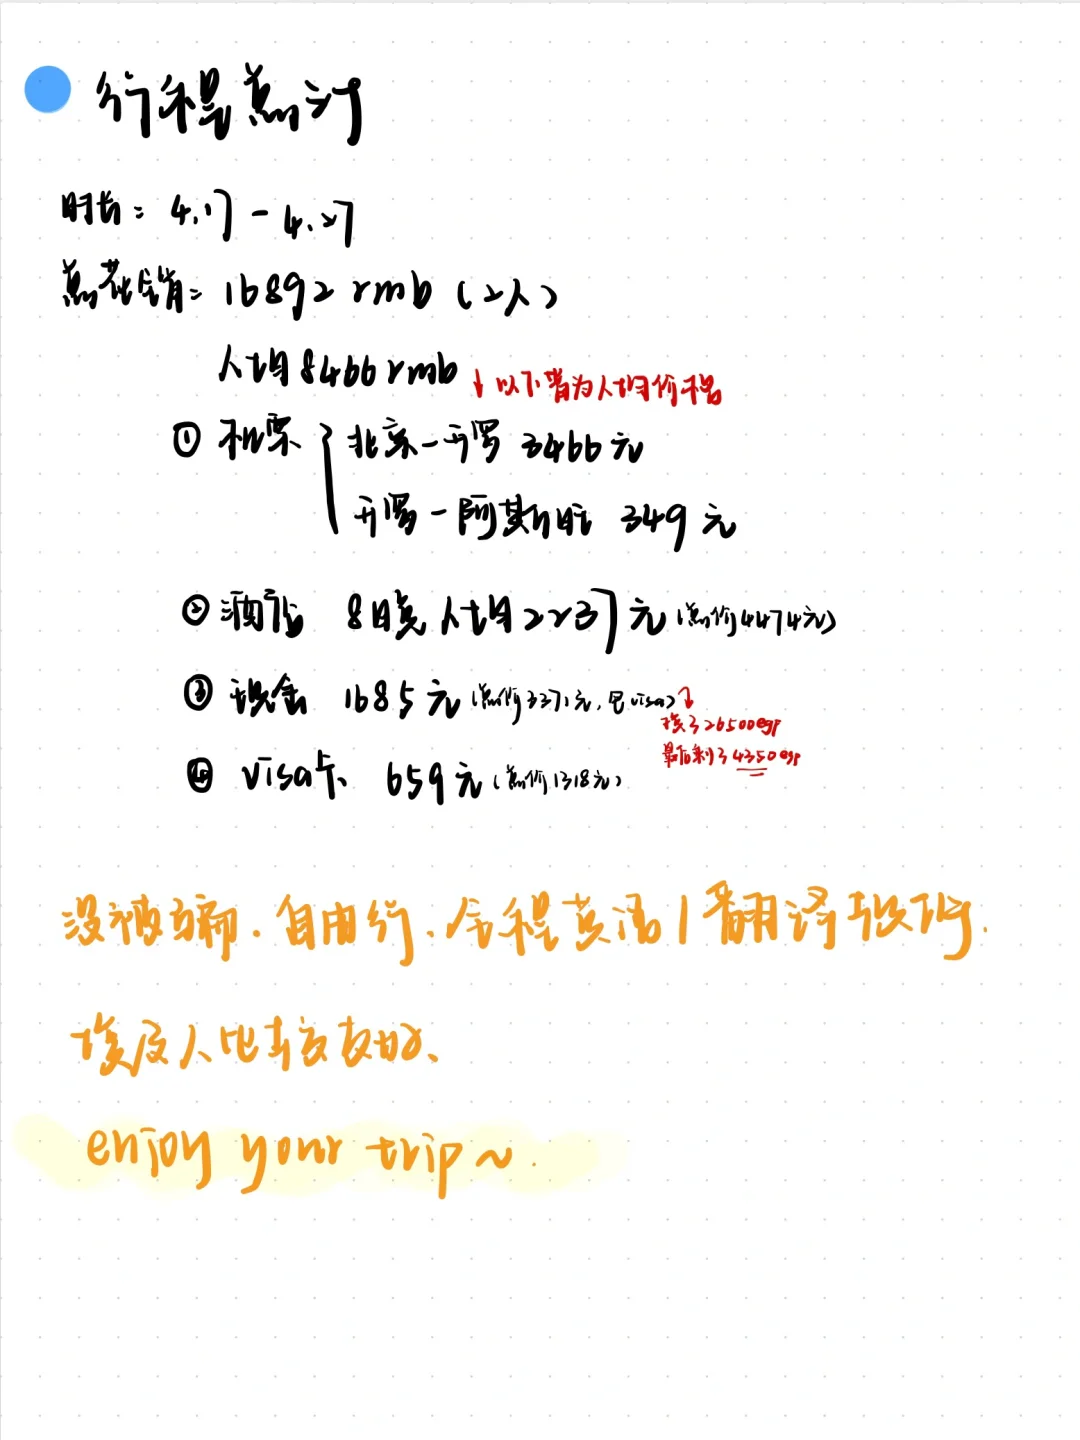 行程总计
时长：4.17-4.27
总花销：16892rmb（2人）
人均8466rmb ↓以下皆为人均价格
① 机票 { 北京-开罗 3466元
开罗-阿斯旺 349元
② 酒店 8晚 人均2237元（总价4474元）
③ 现金 1685元（总价3371元，包visa）↓
换了26500egp
最后剩了4350egp
④ visa卡 659元（总价1318元）
没被骗、自由行、全程英语/翻译软件.
埃及人比较友好、
enjoy your trip~.